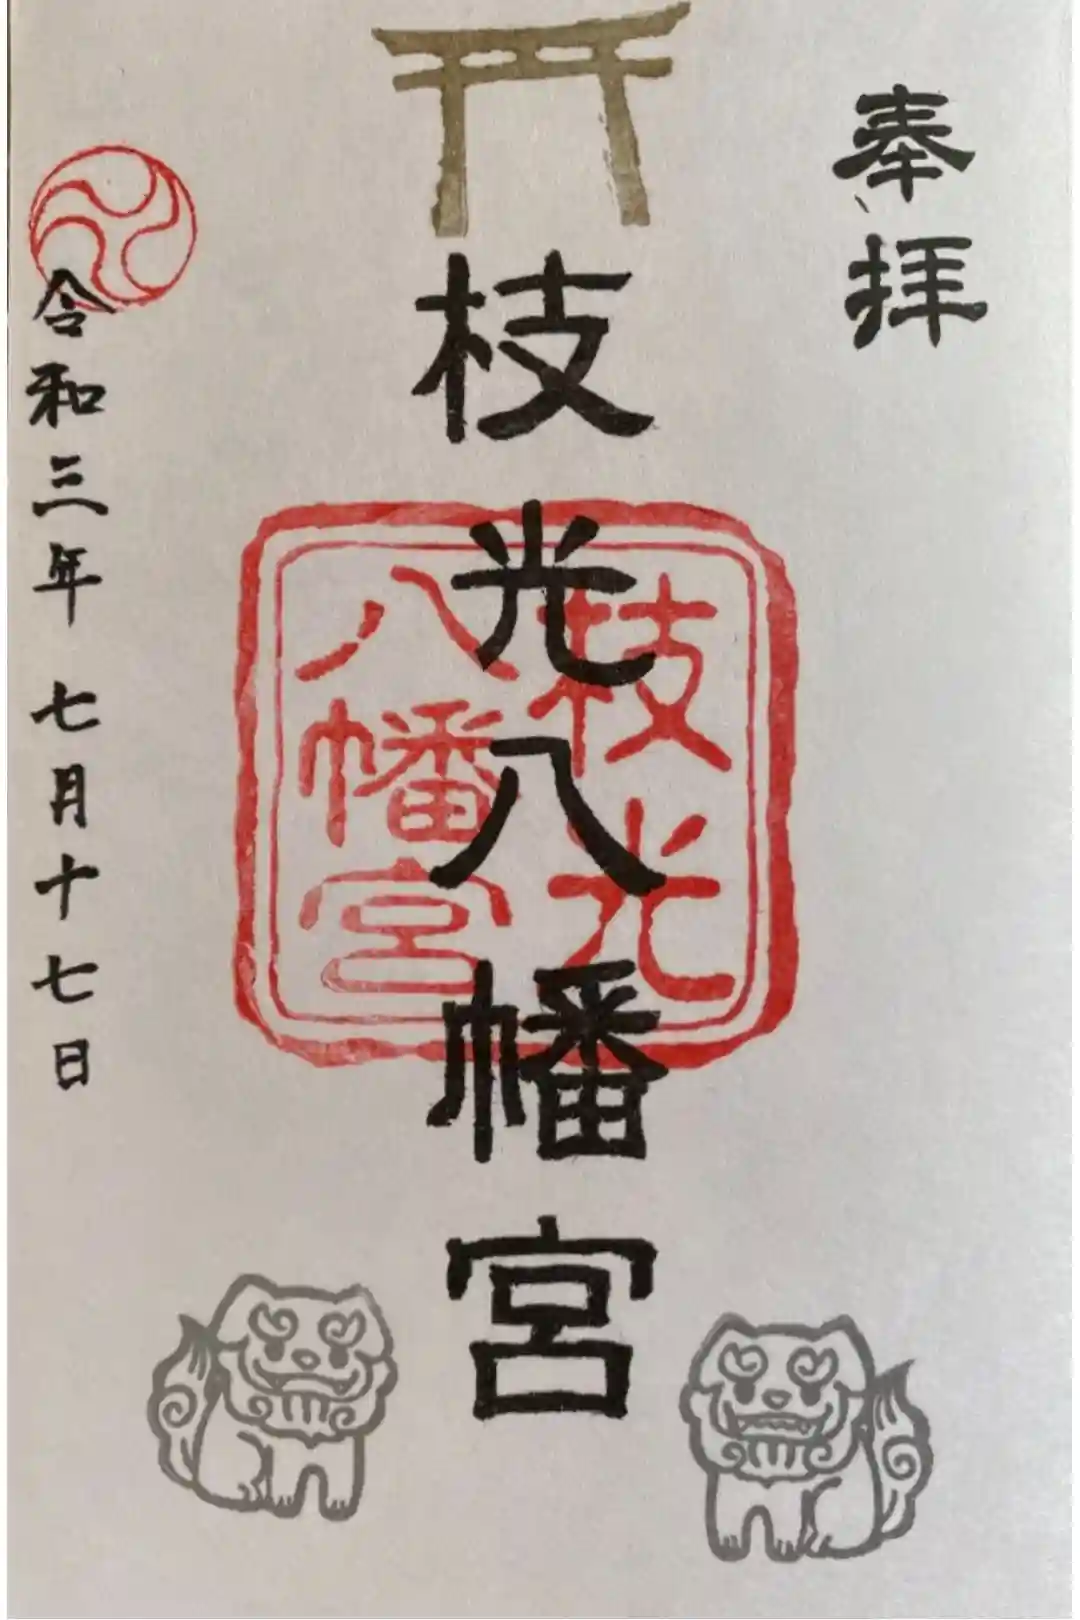 奉拝
枝光八幡宮
枝光
八幡宮
令和三年 七月十七日